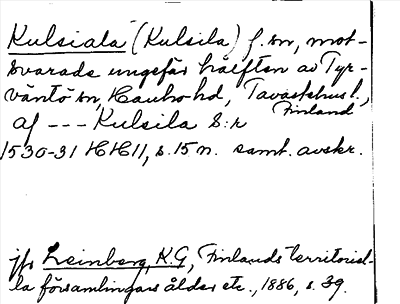 Kulsiala (Kulsila) f. sn, mot-
svarade ungefär hälften av Tyr-
väntö sn, Hauho hd, Tavastehus l.,
Finland
af --- Kulsila S:n
1530-31 HH 11, s. 15 n. samt. avskr.
jfr Leinberg, K.G, Finlands territorial-
la församlingars ålder etc., 1886, s. 39.